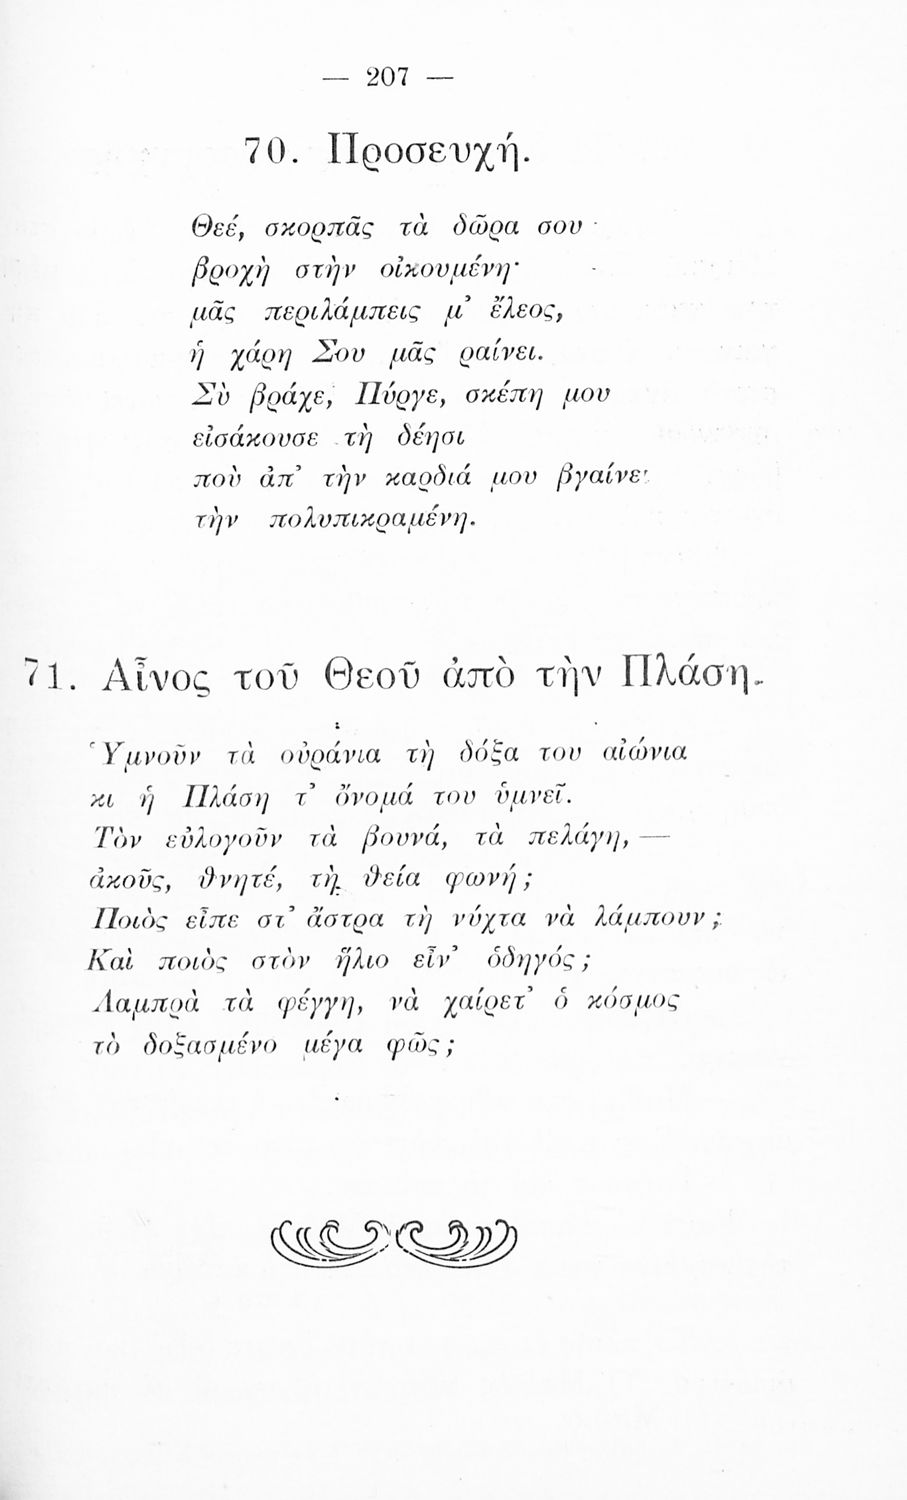 — 207 —
70. Προσευχή.
Θεέ, σκορπᾶς τὰ δῶρα σου
βροχὴ στὴν οἰκουμένη·
μᾶς περιλάμπεις μ’ ἔλεος,
ἡ χάρη Σου μᾶς ραίνει.
Σὺ βράχε, Πύργε, σκέπη μου
εἰσάκουσε τὴ δέησι
ποὺ ἀπ’ τὴν καρδιά μου βγαίνει
τὴν πολυπικραμένη.
71. Αἶνος τοῦ Θεοῦ ἀπὸ τὴν Πλάση.
Ὑμνοῦν τὰ οὐράνια τὴ δόξα του αἰώνια
κι ἡ Πλάση τ’ ὄνομά του ὑμνεῖ.
Τὸν εὐλογοῦν τὰ βουνά, τὰ πελάγη, —
ἀκοῦς, θνητέ, τὴ θεία φωνή;
Ποιὸς εἶπε στ’ ἄστρα τὴ νύχτα νὰ λάμπουν;
Καὶ ποιὸς στὸν ἥλιο εἶν’ ὁδηγός;
Λαμπρὰ τὰ φέγγη, νὰ χαίρετ’ ὁ κόσμος
τὸ δοξασμένο μέγα φῶς;